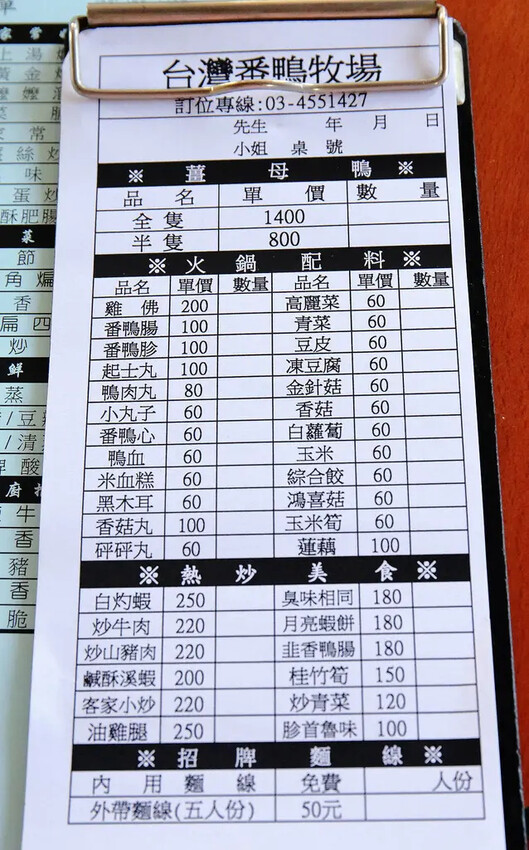 台灣番鴨牧場
訂位專線:03-4551427
先生 年 月 日
小姐 桌號
※ 薑母鴨 ※
品名 單價 數量
全隻 1400
半隻 800
※ 火鍋配料 ※
品名 單價 數量 品名 單價 數量
雞佛 200 高麗菜 60
番鴨腸 100 青菜 60
番鴨胗 100 豆皮 60
起士丸 100 凍豆腐 60
鴨肉丸 80 金針菇 60
小丸子 60 香菇 60
番鴨心 60 白蘿蔔 60
鴨血 60 玉米 60
米血糕 60 綜合餃 60
黑木耳 60 鴻喜菇 60
香菇丸 100 玉米筍 60
砰砰丸 60 蓮藕 100
※ 熱炒美食 ※
白灼蝦 250 臭味相同 180
炒牛肉 220 月亮蝦餅 180
炒山豬肉 220 韭香鴨腸 180
鹹酥溪蝦 200 桂竹筍 150
客家小炒 220 炒青菜 120
油雞腿 250 胗首魯味 100
※ 招牌麵線 ※
內用麵線 免費 人份
外帶麵線(五人份) 50元
家常
上湯
黃金
菜
家常
絲炒
味
蛋炒
酥肥腸
菜
節
角煸
香
扁四
炒
鮮
蒸
/豆
/清
酸
廚
牛
香
豬
香
脆